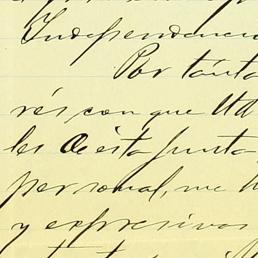 Independencia
Por tanto
rés con que Ud
les de esta Junta
personal, me h
y expresivas